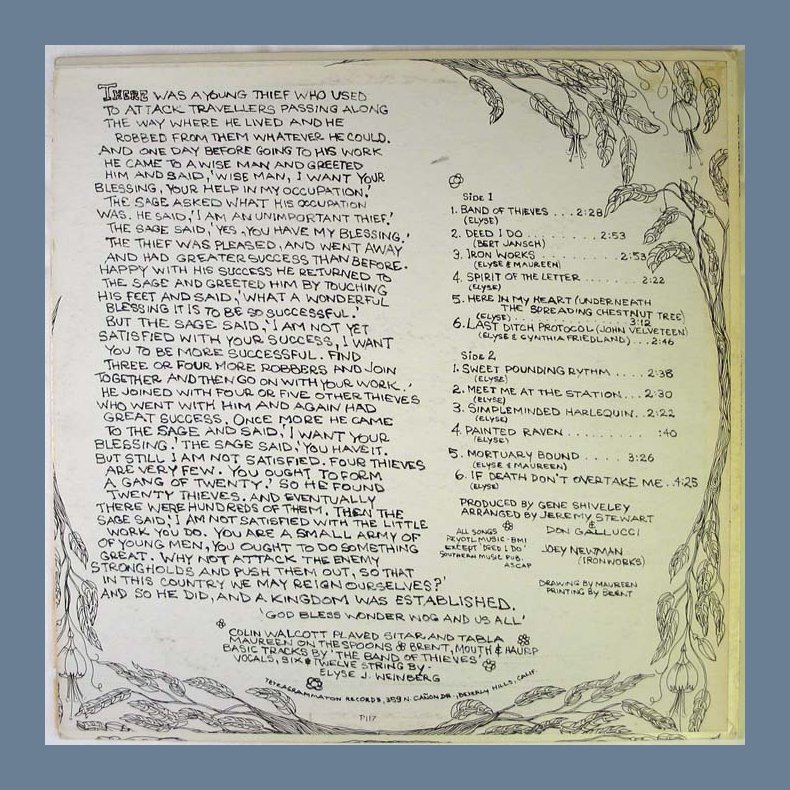 THERE WAS A YOUNG THIEF WHO USED
TO ATTACK TRAVELLERS PASSING ALONG
THE WAY WHERE HE LIVED AND HE
ROBBED FROM THEM WHATEVER HE COULD.
AND ONE DAY BEFORE GOING TO HIS WORK
HE CAME TO A WISE MAN AND GREETED
HIM AND SAID, 'WISE MAN, I WANT YOUR
BLESSING, YOUR HELP IN MY OCCUPATION.'
THE SAGE ASKED WHAT HIS OCCUPATION
WAS. HE SAID, 'I AM AN UNIMPORTANT THIEF.'
THE SAGE SAID, 'YES, YOU HAVE MY BLESSING.'
THE THIEF WAS PLEASED, AND WENT AWAY
AND HAD GREATER SUCCESS THAN BEFORE.
HAPPY WITH HIS SUCCESS HE RETURNED TO
THE SAGE AND GREETED HIM BY TOUCHING
HIS FEET AND SAID, 'WHAT A WONDERFUL
BLESSING IT IS TO BE SO SUCCESSFUL.'
BUT THE SAGE SAID, 'I AM NOT YET
SATISFIED WITH YOUR SUCCESS, I WANT
YOU TO BE MORE SUCCESSFUL. FIND
THREE OR FOUR MORE ROBBERS AND JOIN
TOGETHER AND THEN GO ON WITH YOUR WORK.'
HE JOINED WITH FOUR OR FIVE OTHER THIEVES
WHO WENT WITH HIM AND AGAIN HAD
GREAT SUCCESS. ONCE MORE HE CAME
TO THE SAGE AND SAID, 'I WANT YOUR
BLESSING.' THE SAGE SAID, 'YOU HAVE IT.
BUT STILL I AM NOT SATISFIED. FOUR THIEVES
ARE VERY FEW. YOU OUGHT TO FORM
A GANG OF TWENTY.' SO HE FOUND
TWENTY THIEVES. AND EVENTUALLY
THERE WERE HUNDREDS OF THEM. THEN THE
SAGE SAID, 'I AM NOT SATISFIED WITH THE LITTLE
WORK YOU DO. YOU ARE A SMALL ARMY OF
OF YOUNG MEN, YOU OUGHT TO DO SOMETHING
GREAT. WHY NOT ATTACK THE ENEMY
STRONGHOLDS AND PUSH THEM OUT, SO THAT
IN THIS COUNTRY WE MAY REIGN OURSELVES?'
AND SO HE DID, AND A KINGDOM WAS ESTABLISHED.
'GOD BLESS WONDER WOG AND US ALL'
COLIN WALCOTT PLAYED SITAR AND TABLA
MAUREEN ON THE SPOONS & BRENT, MOUTH & HAURP
BASIC TRACKS BY 'THE BAND OF THIEVES'
VOCALS, SIX & TWELVE STRING BY -
ELYSE J. WEINBERG
TETRAGRAMMATON RECORDS, 359 N. CAÑON DR., BEVERLY HILLS, CALIF.
P117
SIDE 1
1. BAND OF THIEVES . . . 2:28
(ELYSE)
2. DEED I DO . . . . . . . . . 2:53
(BERT JANSCH)
3. IRON WORKS . . . . . . . . . 2:53
(ELYSE & MAUREEN)
4. SPIRIT OF THE LETTER . . . . . . . 2:22
(ELYSE)
5. HERE IN MY HEART (UNDERNEATH
THE SPREADING CHESTNUT TREE)
(ELYSE) . . . . . . . . . . . . . . 3:12
6. LAST DITCH PROTOCOL (JOHN VELVETEEN)
(ELYSE & CYNTHIA FRIEDLAND) . . . 2:46
SIDE 2
1. SWEET POUNDING RYTHM . . . . 2:38
(ELYSE)
2. MEET ME AT THE STATION . . . 2:30
(ELYSE)
3. SIMPLEMINDED HARLEQUIN . . 2:22
(ELYSE)
4. PAINTED RAVEN . . . . . . . . :40
(ELYSE)
5. MORTUARY BOUND . . . . 3:26
(ELYSE & MAUREEN)
6. IF DEATH DON'T OVERTAKE ME . . 4:25
(ELYSE)
PRODUCED BY GENE SHIVELEY
ARRANGED BY JEREMY STEWART
&
DON GALLUCCI
JOEY NEWMAN
(IRONWORKS)
ALL SONGS
PEVOTL MUSIC - BMI
EXCEPT 'DEED I DO'
SOUTHERN MUSIC PUB.
ASCAP
DRAWING BY MAUREEN
PRINTING BY BRENT